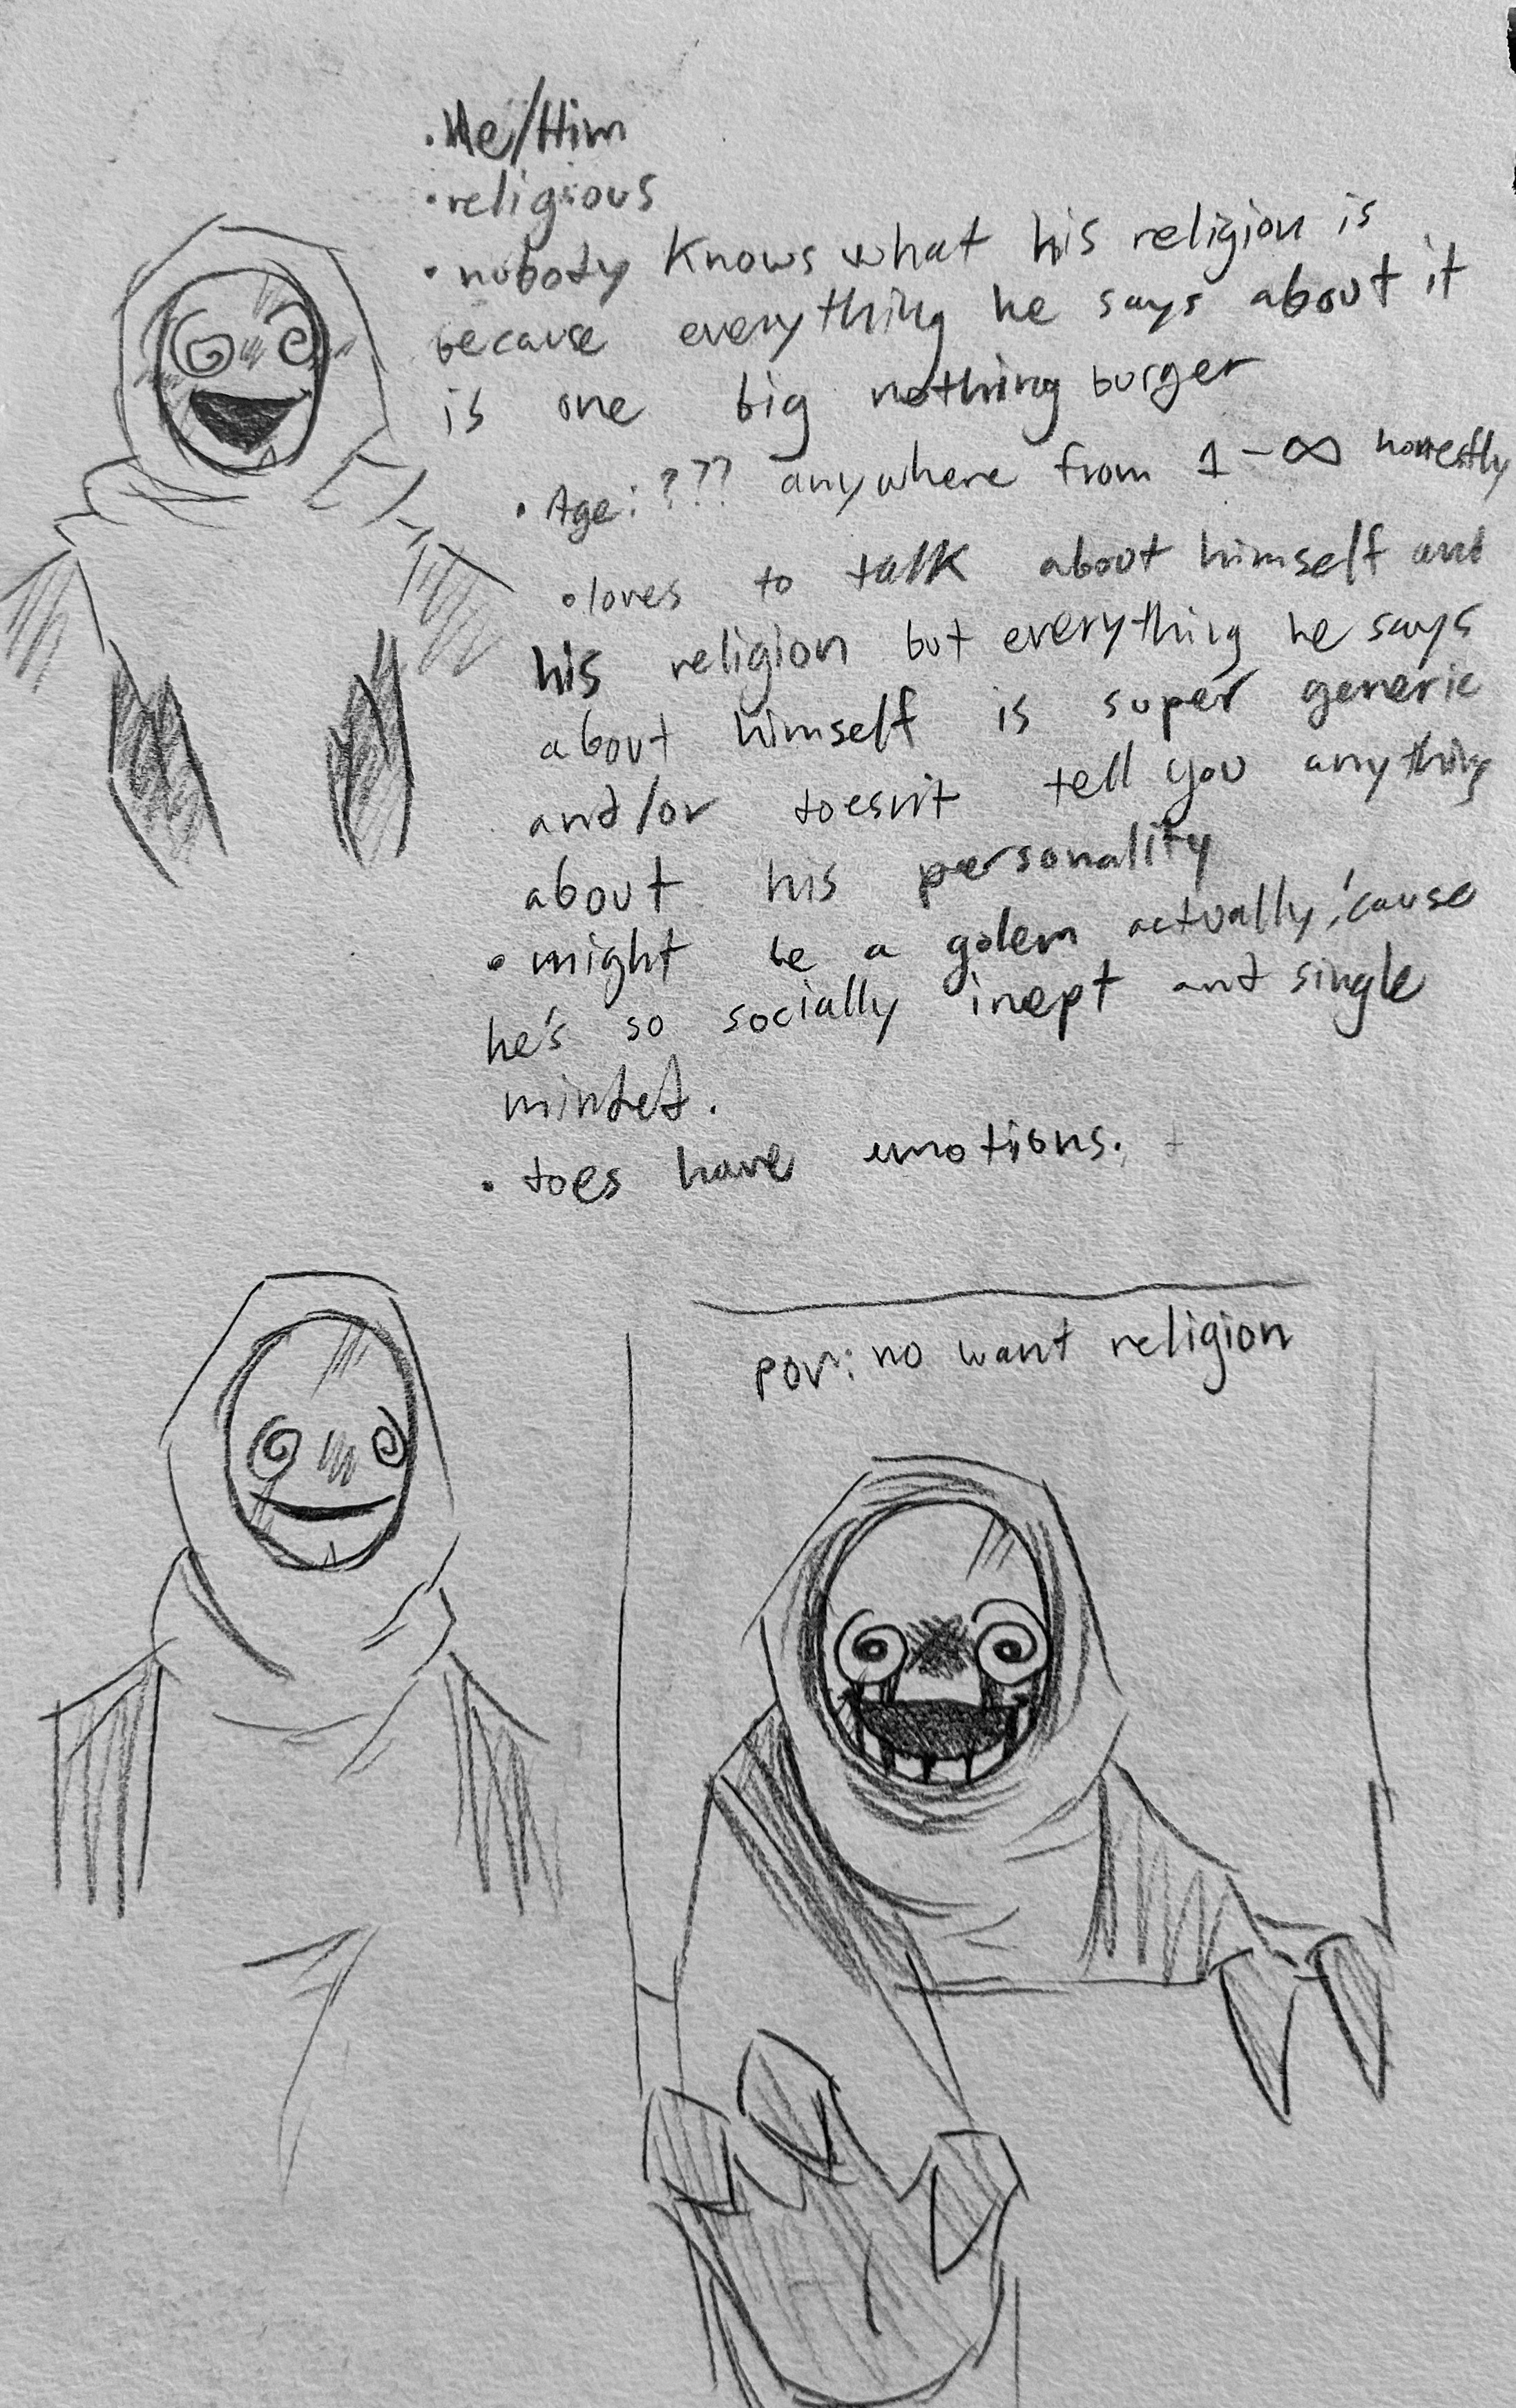 • He/Him
• religious
• nobody knows what his religion is
because everything he says about it
is one big nothing burger
• Age: ??? anywhere from 1-∞ honestly
• loves to talk about himself and
his religion but everything he says
about himself is super generic
and/or toesn't tell you anything
about his personality
• might be a golem actually, 'cause
he's so socially inept and single
minted.
• toes have emotions.
pov: no want religion